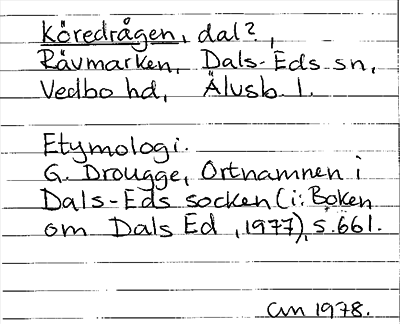 Köredrågen, dal?,
Rävmarken, Dals-Eds sn,
Vedbo hd, Älvsb. l.
Etymologi.
G. Drougge, Ortnamnen i
Dals-Eds socken (i: Boken
om Dals Ed, 1977), s. 661.
am 1978.